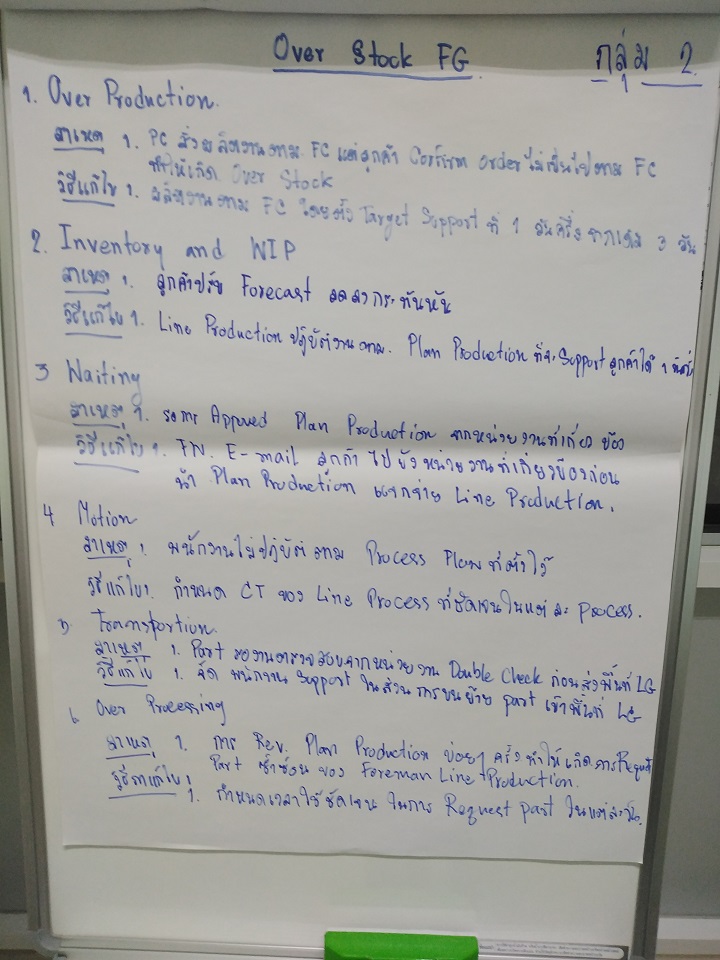 Over Stock FG กลุ่ม 2
1. Over Production.
สาเหตุ 1. PC สั่งผลิตงานตาม FC แต่ลูกค้า Confirm order ไม่เป็นไปตาม FC
ทำให้เกิด Over Stock
วิธีแก้ไข 1. ผลิตงานตาม FC โดยตั้ง Target Support ที่ 1 วันครึ่ง จากเดิม 3 วัน
2. Inventory and WIP
สาเหตุ 1. ลูกค้าปรับ Forecast ลดลงกระทันหัน
วิธีแก้ไข 1. Line Production ปฏิบัติงานตาม. Plan Production ที่จะ Support ลูกค้าได้ 1 วันครึ่ง
3 Waiting
สาเหตุ 1. รอการ Approved Plan Production จากหน่วยงานที่เกี่ยวข้อง
วิธีแก้ไข 1. FW. E-mail ลูกค้า ไปยังหน่วยงานที่เกี่ยวข้องก่อน
นำ Plan Production แจกจ่าย Line Production.
4 Motion
สาเหตุ 1. พนักงานไม่ปฏิบัติตาม Process Flow ที่ตั้งไว้
วิธีแก้ไข 1. กำหนด CT ของ Line Process ที่ชัดเจนในแต่ละ process.
5 Transportion.
สาเหตุ 1. Part รองานตรวจสอบจากหน่วยงาน Double Check ก่อนส่งพื้นที่ LG
วิธีแก้ไข 1. จัด พนักงาน Support ในส่วนการขนย้าย part เข้าพื้นที่ LG
6 Over Processing
สาเหตุ 1. การ Rev. Plan Production บ่อยๆ ครั้ง ทำให้เกิดการ Request
Part ซ้ำซ้อน ของ Foreman Line Production.
วิธีการแก้ไข 1. กำหนดเวลาให้ชัดเจน ในการ Request part ในแต่ละวัน.